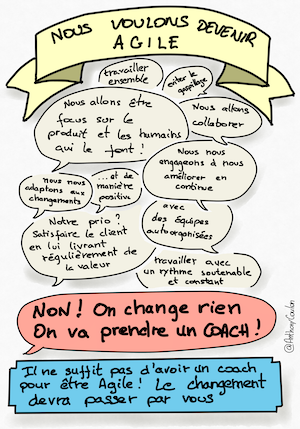 NOUS VOULONS DEVENIR
AGILE
travailler
ensemble
éviter le
gaspillage
Nous allons être
focus sur le
produit et les humains
qui le font !
Nous allons
collaborer
Nous nous
engageons à nous
améliorer en
continue
nous nous
adaptons aux
changements
...et de
manière
positive
avec
des équipes
autoorganisées
Notre prio ?
Satisfaire le client
en lui livrant
régulièrement de
la valeur
travailler avec
un rythme soutenable
et constant
NON ! On change rien
On va prendre un COACH !
Il ne suffit pas d'avoir un coach
pour être Agile ! Le changement
devra passer par vous
@AnthonyCoulon